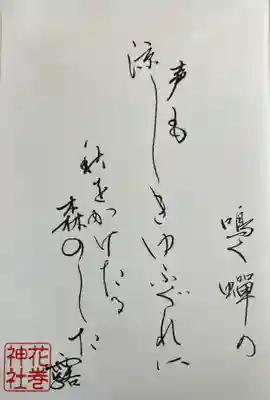 鳴く蟬の
声も
涼しきゆふぐれに
秋をかけたる
森のした露
花巻
神社